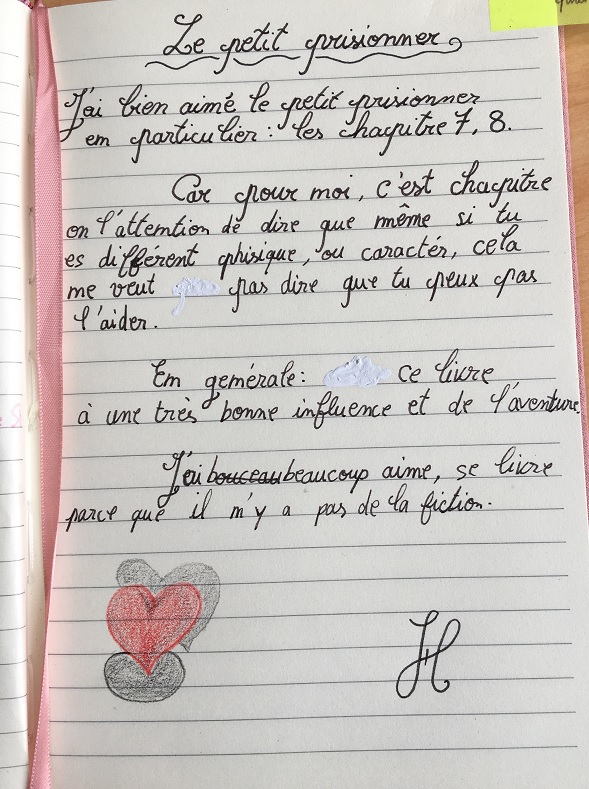 Le petit prisionner
J'ai bien aimé le petit prisionner
en particulier : les chapitre 7, 8.
Car pour moi, c'est chapitre
on l'attention de dire que même si tu
es différent phisique, ou caractér, cela
me veut pas dire que tu peux pas
l'aider.
En genérale : ce livre
à une très bonne influence et de l'aventure
J'ai bouceau beaucoup aime, se livre
parce que il n'y a pas de la fiction.
H